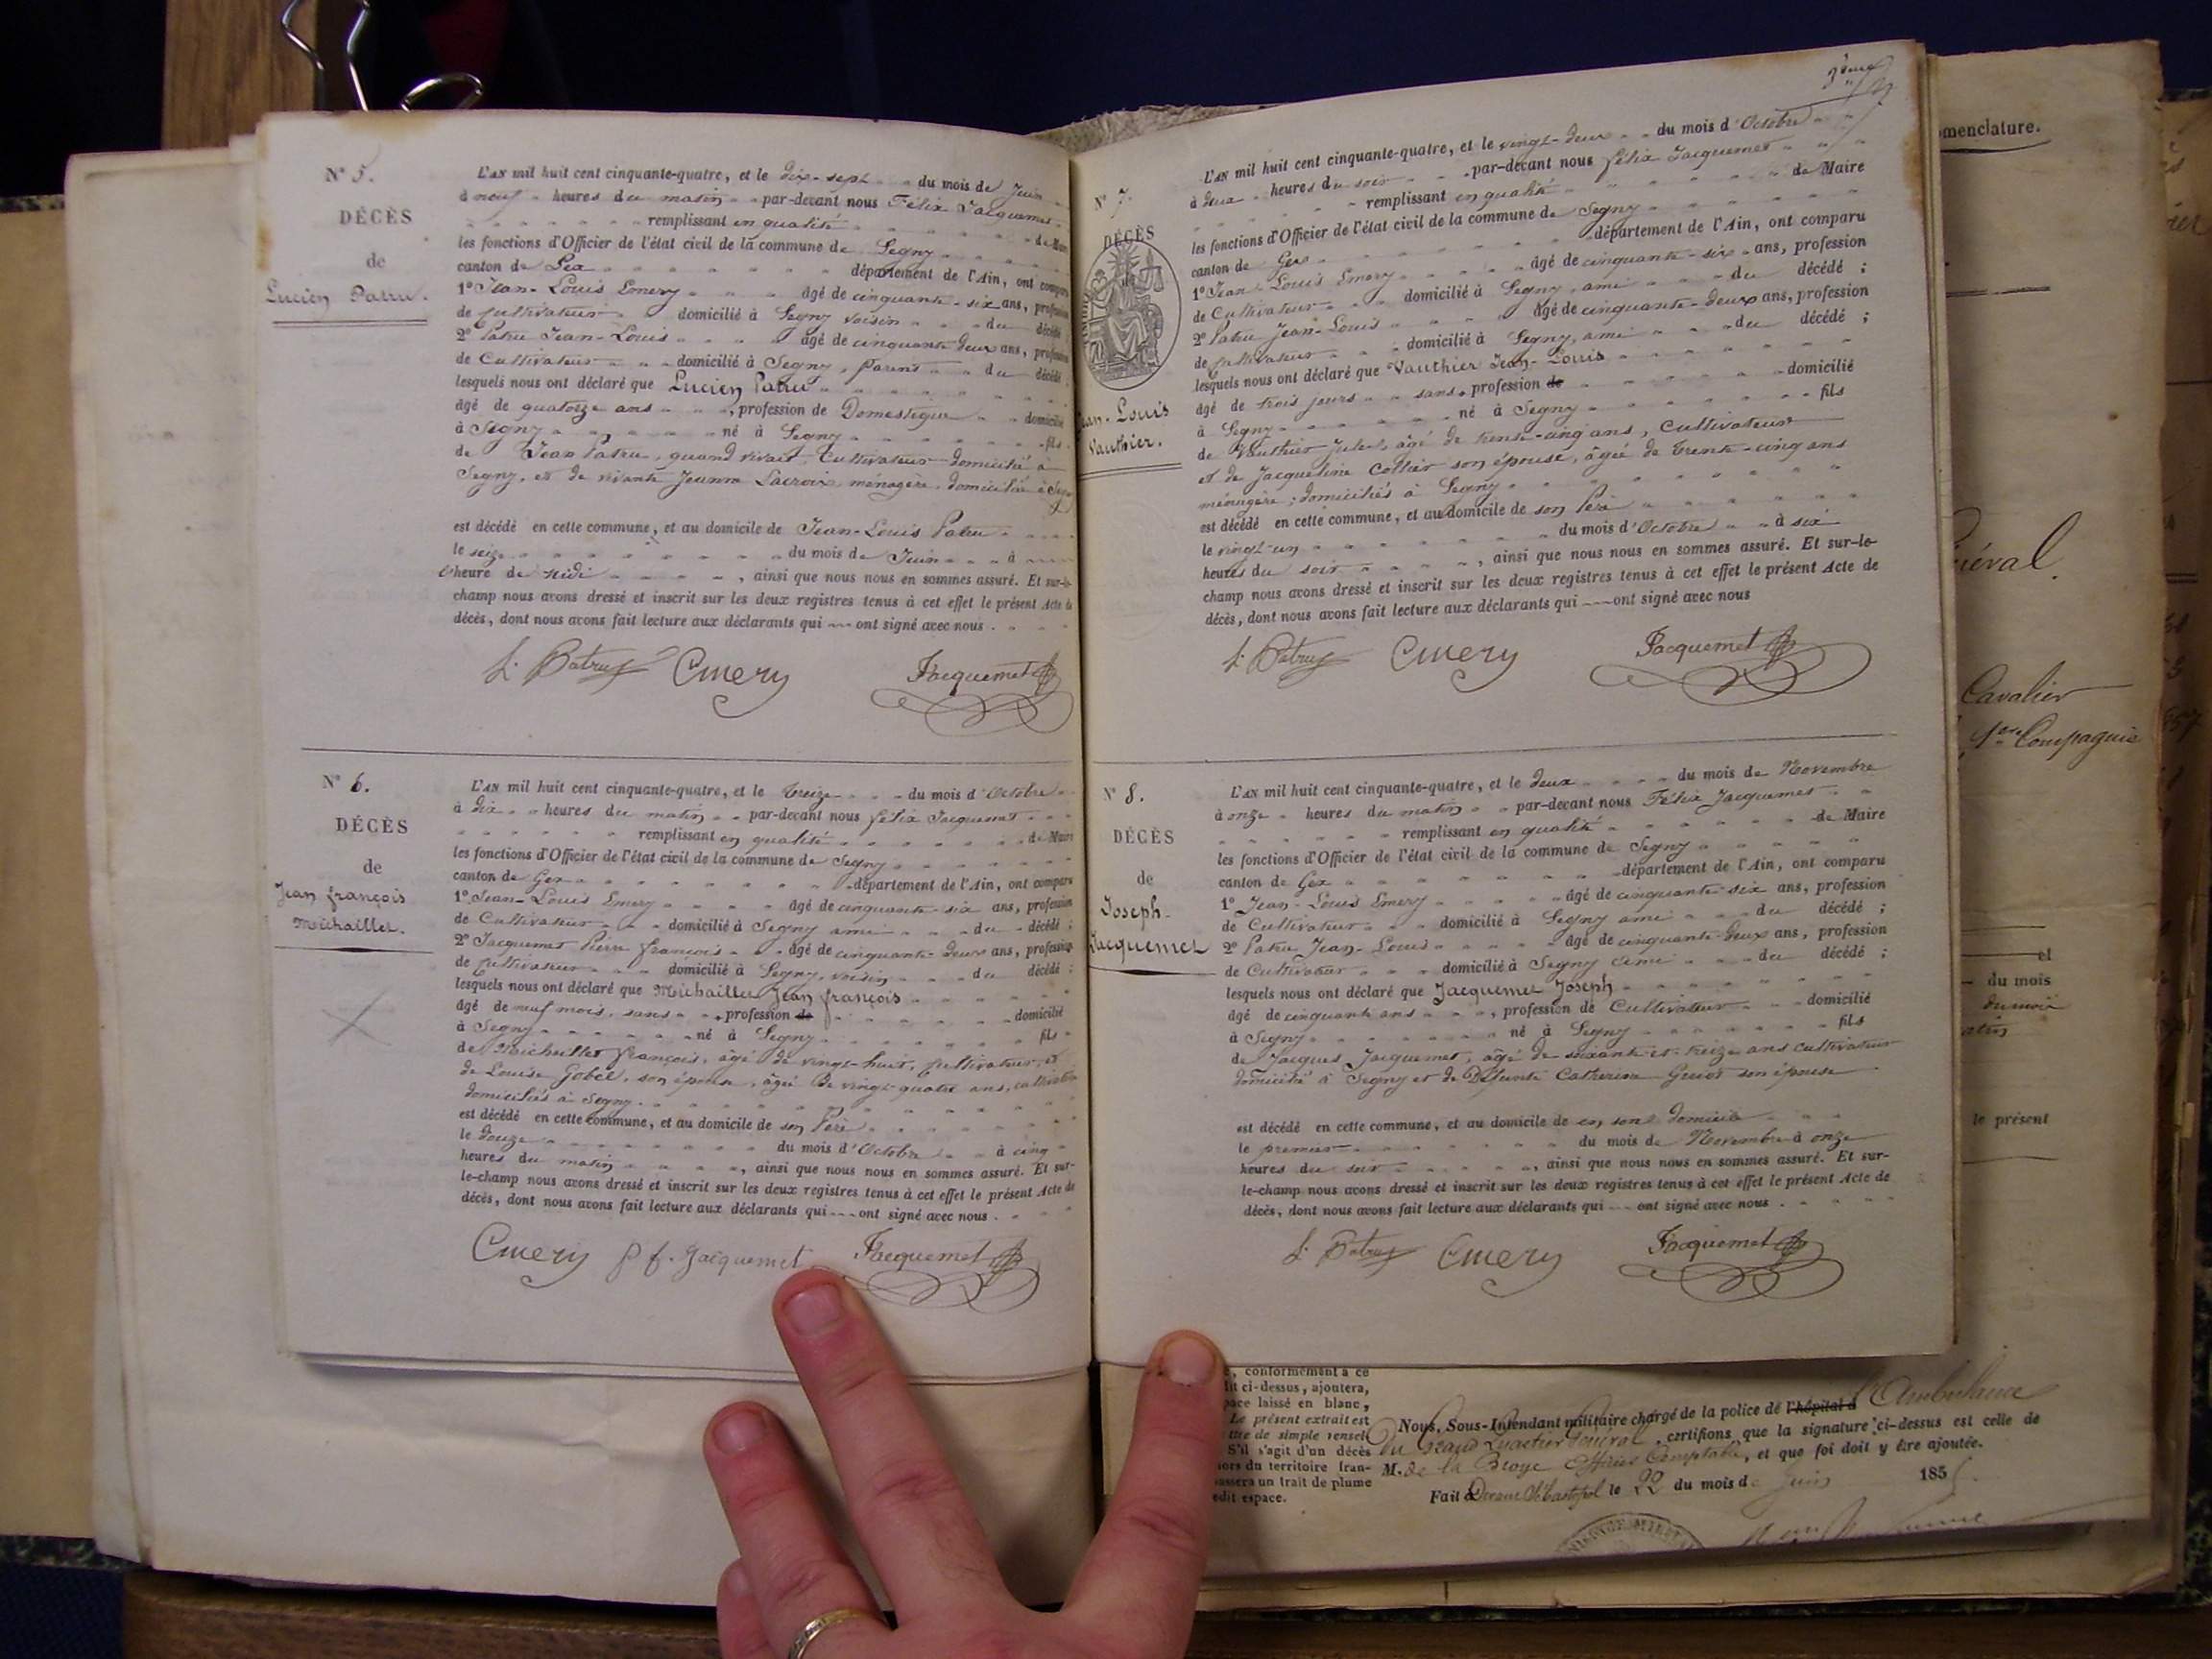 N° 5.
DÉCÈS
de
Lucien Patru.
L'AN mil huit cent cinquante-quatre, et le dix-sept du mois de Juin
à neuf heures du matin par-devant nous Félix Jacquemet
remplissant en qualité de Maire
les fonctions d'Officier de l'état civil de la commune de Segny
canton de Gex département de l'Ain, ont comparu
1° Jean-Louis Emery âgé de cinquante-six ans, profession
de Cultivateur domicilié à Segny voisin du décédé
2° Patru Jean-Louis âgé de cinquante deux ans, profession
de Cultivateur domicilié à Segny, parent du décédé
lesquels nous ont déclaré que Lucien Patru
âgé de quatorze ans, profession de Domestique domicilié
à Segny né à Segny fils
de Jean Patru, quand vivait, Cultivateur domicilié à
Segny, et de vivante Jeanne Lacroix ménagère, domiciliée à Segny
est décédé en cette commune, et au domicile de Jean-Louis Patru
le seize du mois de Juin à
l'heure de Midi, ainsi que nous nous en sommes assuré. Et sur-le-
champ nous avons dressé et inscrit sur les deux registres tenus à cet effet le présent Acte de
décès, dont nous avons fait lecture aux déclarants qui ont signé avec nous.
L. Patru Emery Jacquemet
N° 6.
DÉCÈS
de
Jean françois
Michaillet.
L'AN mil huit cent cinquante-quatre, et le treize du mois d'Octobre
à dix heures du matin par-devant nous félix Jacquemet
remplissant en qualité de Maire
les fonctions d'Officier de l'état civil de la commune de Segny
canton de Gex département de l'Ain, ont comparu
1° Jean-Louis Emery âgé de cinquante-six ans, profession
de Cultivateur domicilié à Segny ami du décédé ;
2° Jacquemet Pierre françois âgé de cinquante-deux ans, profession
de Cultivateur domicilié à Segny, voisin du décédé ;
lesquels nous ont déclaré que Michaillet Jean françois
âgé de neuf mois, sans profession de domicilié
à Segny né à Segny fils
de Michaillet françois, âgé de vingt-huit, Cultivateur, et
de Louise Gobel, son épouse, âgée de vingt-quatre ans,
domiciliés à Segny.
est décédé en cette commune, et au domicile de son Père
le douze du mois d'Octobre à cinq
heures du matin, ainsi que nous nous en sommes assuré. Et sur-
le-champ nous avons dressé et inscrit sur les deux registres tenus à cet effet le présent Acte de
décès, dont nous avons fait lecture aux déclarants qui ont signé avec nous.
Emery p f. Jacquemet Jacquemet
N° 7.
DÉCÈS
Jean-Louis
Vauthier.
L'AN mil huit cent cinquante-quatre, et le vingt-deux du mois d'Octobre
à deux heures du soir par-devant nous félix Jacquemet
remplissant en qualité de Maire
les fonctions d'Officier de l'état civil de la commune de Segny
canton de Gex département de l'Ain, ont comparu
1° Jean-Louis Emery âgé de cinquante-six ans, profession
de Cultivateur domicilié à Segny, ami du décédé ;
2° Patru Jean-Louis âgé de cinquante-deux ans, profession
de Cultivateur domicilié à Segny, ami du décédé ;
lesquels nous ont déclaré que Vauthier Jean-Louis
âgé de trois jours sans profession de domicilié
à Segny né à Segny fils
de Vauthier Jules, âgé de trente-cinq ans, Cultivateur
et de Jacqueline son épouse, âgée de trente-cinq ans
ménagère ; domiciliés à Segny
est décédé en cette commune, et au domicile de son Père
le vingt-un du mois d'Octobre à six
heures du soir, ainsi que nous nous en sommes assuré. Et sur-le-
champ nous avons dressé et inscrit sur les deux registres tenus à cet effet le présent Acte de
décès, dont nous avons fait lecture aux déclarants qui ont signé avec nous
L. Patru Emery Jacquemet
N° 8.
DÉCÈS
de
Joseph
Jacquemet
L'AN mil huit cent cinquante-quatre, et le deux du mois de Novembre
à onze heures du matin par-devant nous Félix Jacquemet
remplissant en qualité de Maire
les fonctions d'Officier de l'état civil de la commune de Segny
canton de Gex département de l'Ain, ont comparu
1° Jean-Louis Emery âgé de cinquante-six ans, profession
de Cultivateur domicilié à Segny ami du décédé ;
2° Patru Jean-Louis âgé de cinquante-deux ans, profession
de Cultivateur domicilié à Segny ami du décédé ;
lesquels nous ont déclaré que Jacquemet Joseph
âgé de cinquante ans, profession de Cultivateur domicilié
à Segny né à Segny fils
de Jacques Jacquemet, âgé de soixante-et-treize ans cultivateur
domicilié à Segny et de Défunte Catherine son épouse
est décédé en cette commune, et au domicile de en son domicile
le premier du mois de Novembre à onze
heures du soir, ainsi que nous nous en sommes assuré. Et sur-
le-champ nous avons dressé et inscrit sur les deux registres tenus à cet effet le présent Acte de
décès, dont nous avons fait lecture aux déclarants qui ont signé avec nous.
L. Patru Emery Jacquemet
omenclature.
Cavalier
1ère Compagnie
et
du mois
le présent
, conformément à ce
dit ci-dessus, ajoutera,
pace laissé en blanc,
Le présent extrait est
titre de simple rensei-
S'il s'agit d'un décès
hors du territoire fran-
passera un trait de plume
edit espace.
Nous, Sous-Intendant militaire chargé de la police de l'hôpital d l'Ambulance
du Grand Quartier Général, certifions que la signature ci-dessus est celle de
M. de la Broye Officier Comptable, et que foi doit y être ajoutée.
Fait à Devant Sébastopol le 22 du mois de Juin 185